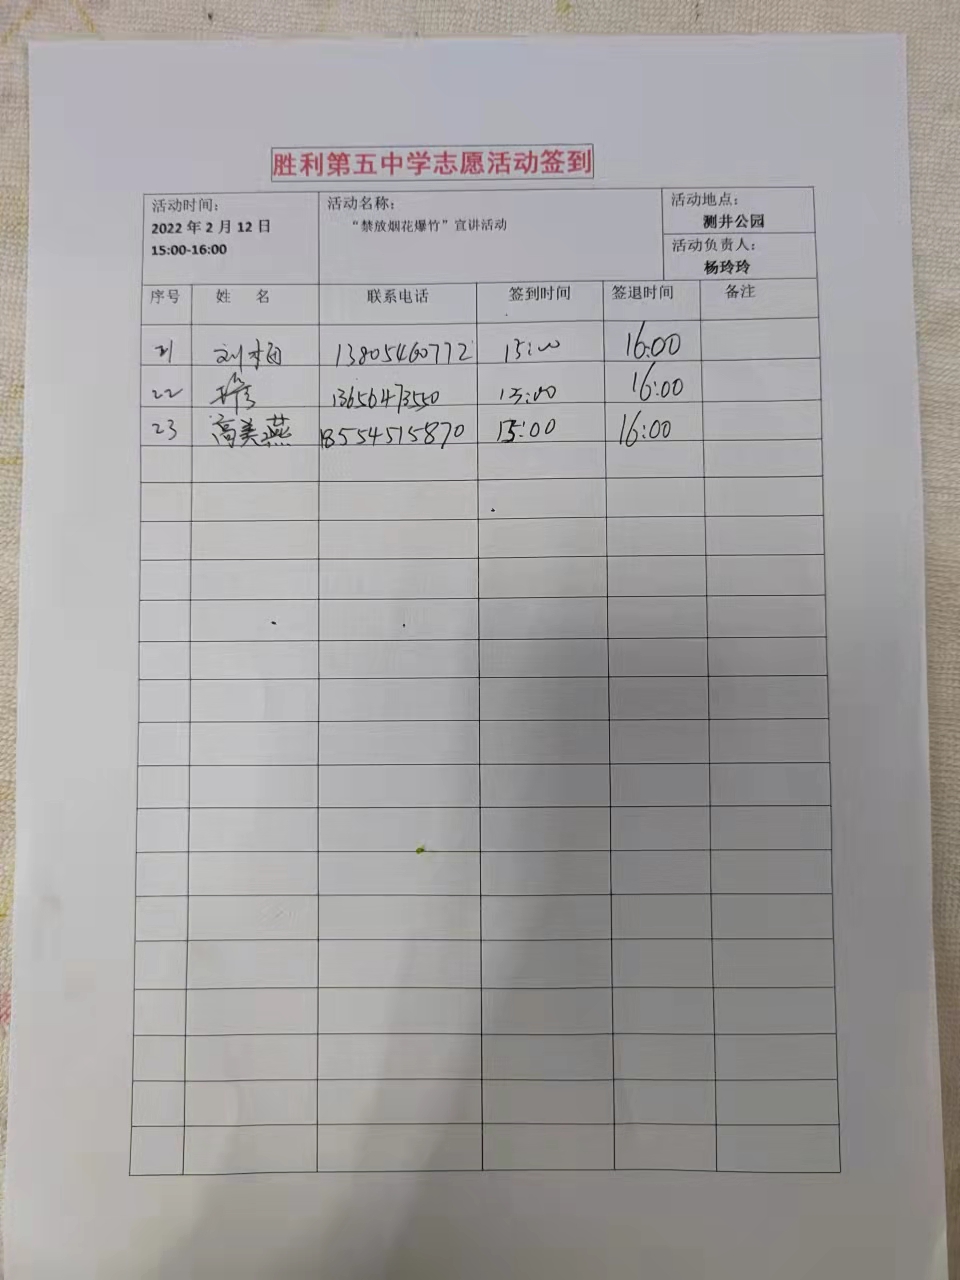 胜利第五中学志愿活动签到
活动时间：
2022 年 2 月 12 日
15:00-16:00
活动名称：
“禁放烟花爆竹”宣讲活动
活动地点：
测井公园
活动负责人：
杨玲玲
序号 姓 名 联系电话 签到时间 签退时间 备注
21 刘梅 13805460772 15:00 16:00
22 13656473550 15:00 16:00
23 高美燕 18554515870 15:00 16:00